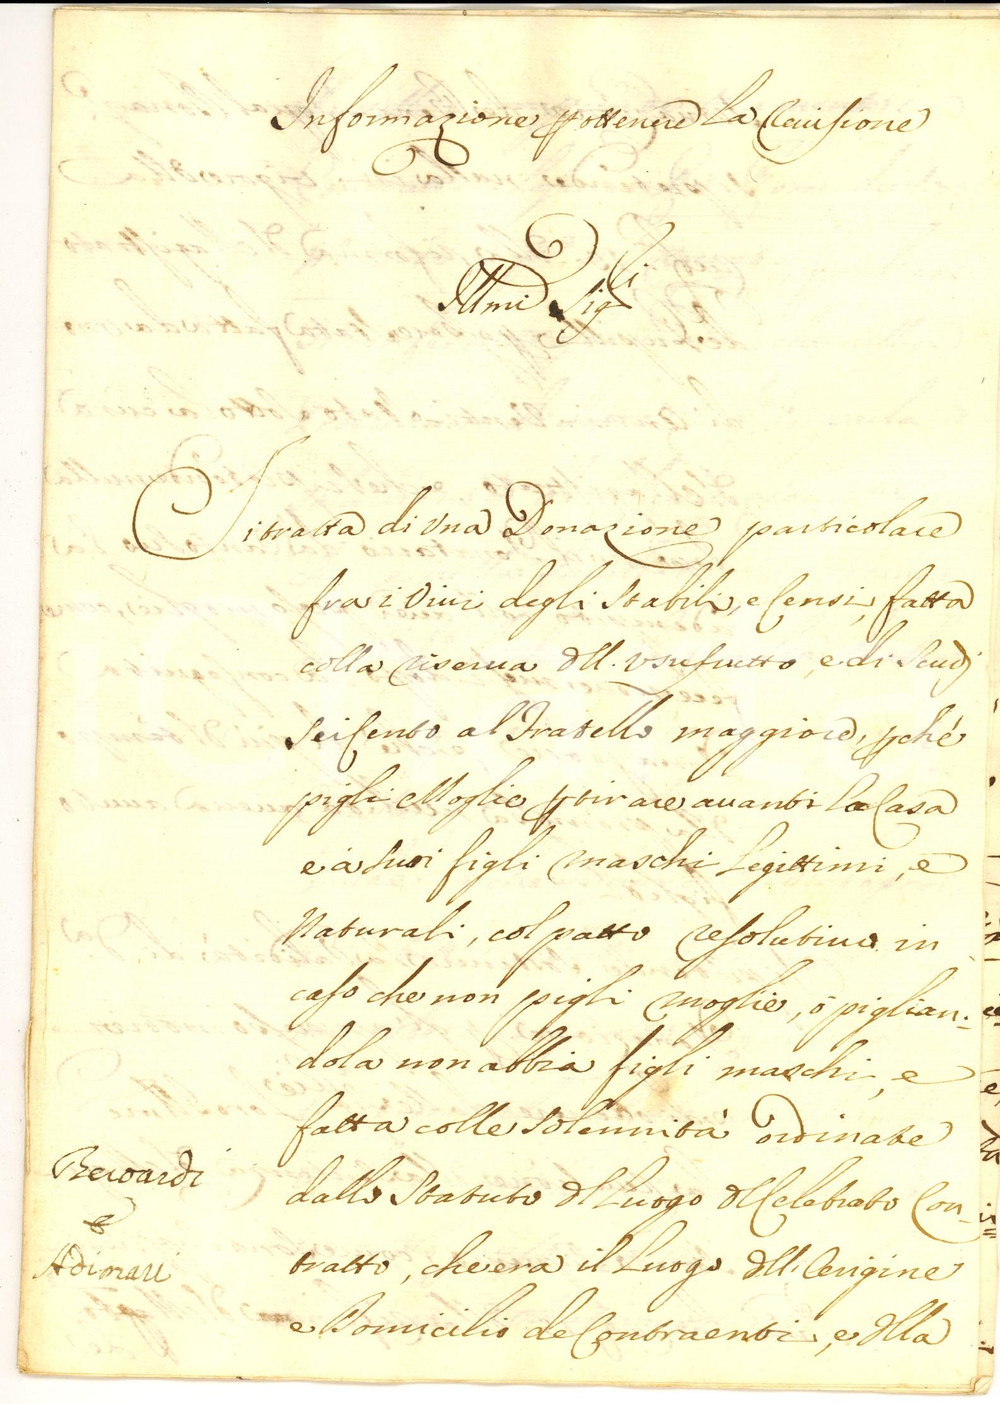 Informazione p ottenere La Causione
Illmi Sigri
Si tratta di una Donazione particolare
fra i Vivi degli Stabili, e Censi, fatta
colla riserua dell. usufrutto, e di Scudi
Seicento al Fratello maggiore, pché
pigli Moglie p tirare auanti la Casa
e à suoi figli maschi Legittimi, e
Naturali, col patto resolutiuo in
caso che non pigli moglie, ò piglian.
dola non abbia figli maschi, e
fatta colle solennità ordinate
dallo Statuto del Luogo del Celebrato Con-
tratto, che era il Luogo dell. Origine
e Domicilio de Contraenti, e della
Berardi
e
Adimari